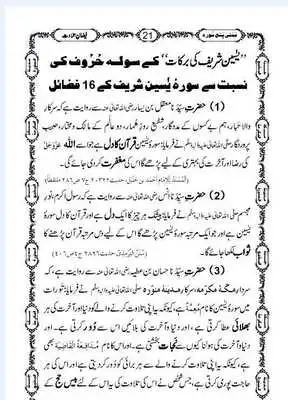 مدنی پنج سورہ
21
فیضانِ تلاوت
”یٰسین شریف کی برکات“ کے سولہ حُرُوف کی
نسبت سے سورۂ یٰسین شریف کے 16 فضائل
(1) حضرتِ سیِّدُنا مَعْقِل بن یسار رضی اللہ تعالیٰ عنہ سے روایت ہے کہ سرکارِ
والا تبار، ہم بے کسوں کے مددگار، شفیعِ روزِ شُمار، دو عالَم کے مالک و مختار، حبیبِ
پروردگار صلی اللہ تعالیٰ علیہ والہ وسلم نے فرمایا سورۂ یٰسین قرآن کا دل ہے جو اسے اللہ عزوجل
کی رضا اور آخرت کی بہتری کے لیے پڑھے گا اس کی مغفرت کر دی جائے گی۔
(2) حضرتِ سیِّدُنا انس رضی اللہ تعالیٰ عنہ سے روایت ہے کہ رسولِ اکرم، نورِ
مجسم صلی اللہ تعالیٰ علیہ والہ وسلم نے فرمایا بیشک ہر چیز کا ایک دل ہے اور قرآن کا دل سورۂ
یٰسین ہے اور جو ایک مرتبہ یٰسین پڑھے گا اس کے لئے دس مرتبہ قرآن پڑھنے کا
ثواب لکھا جائے گا۔
(3) حضرتِ سیِّدُنا حسان بن عطیہ رضی اللہ تعالیٰ عنہ سے روایت ہے، کہ
سردارِ مکہ مکرمہ، سرکارِ مدینہ منورہ صلی اللہ تعالیٰ علیہ والہ وسلم نے فرمایا تورات میں
سورۂ یٰسین کا نام ہے، کیونکہ یہ اپنی تلاوت کرنے والے کو دنیا اور آخرت کی ہر
بھلائی عطا کرتی ہے، دنیا و آخرت کی بلائیں اس سے دُور کرتی ہے اور
دنیا و آخرت کی ہولناکیوں سے نجات بخشتی ہے۔ اور اس کا نام
بھی ہے کیونکہ یہ اپنی تلاوت کرنے والے سے ہر برائی کو دور کر دیتی ہے اور اس کی ہر
حاجت پوری کرتی ہے، جس شخص نے اس کی تلاوت کی یہ اس کے لئے بیس حج کے